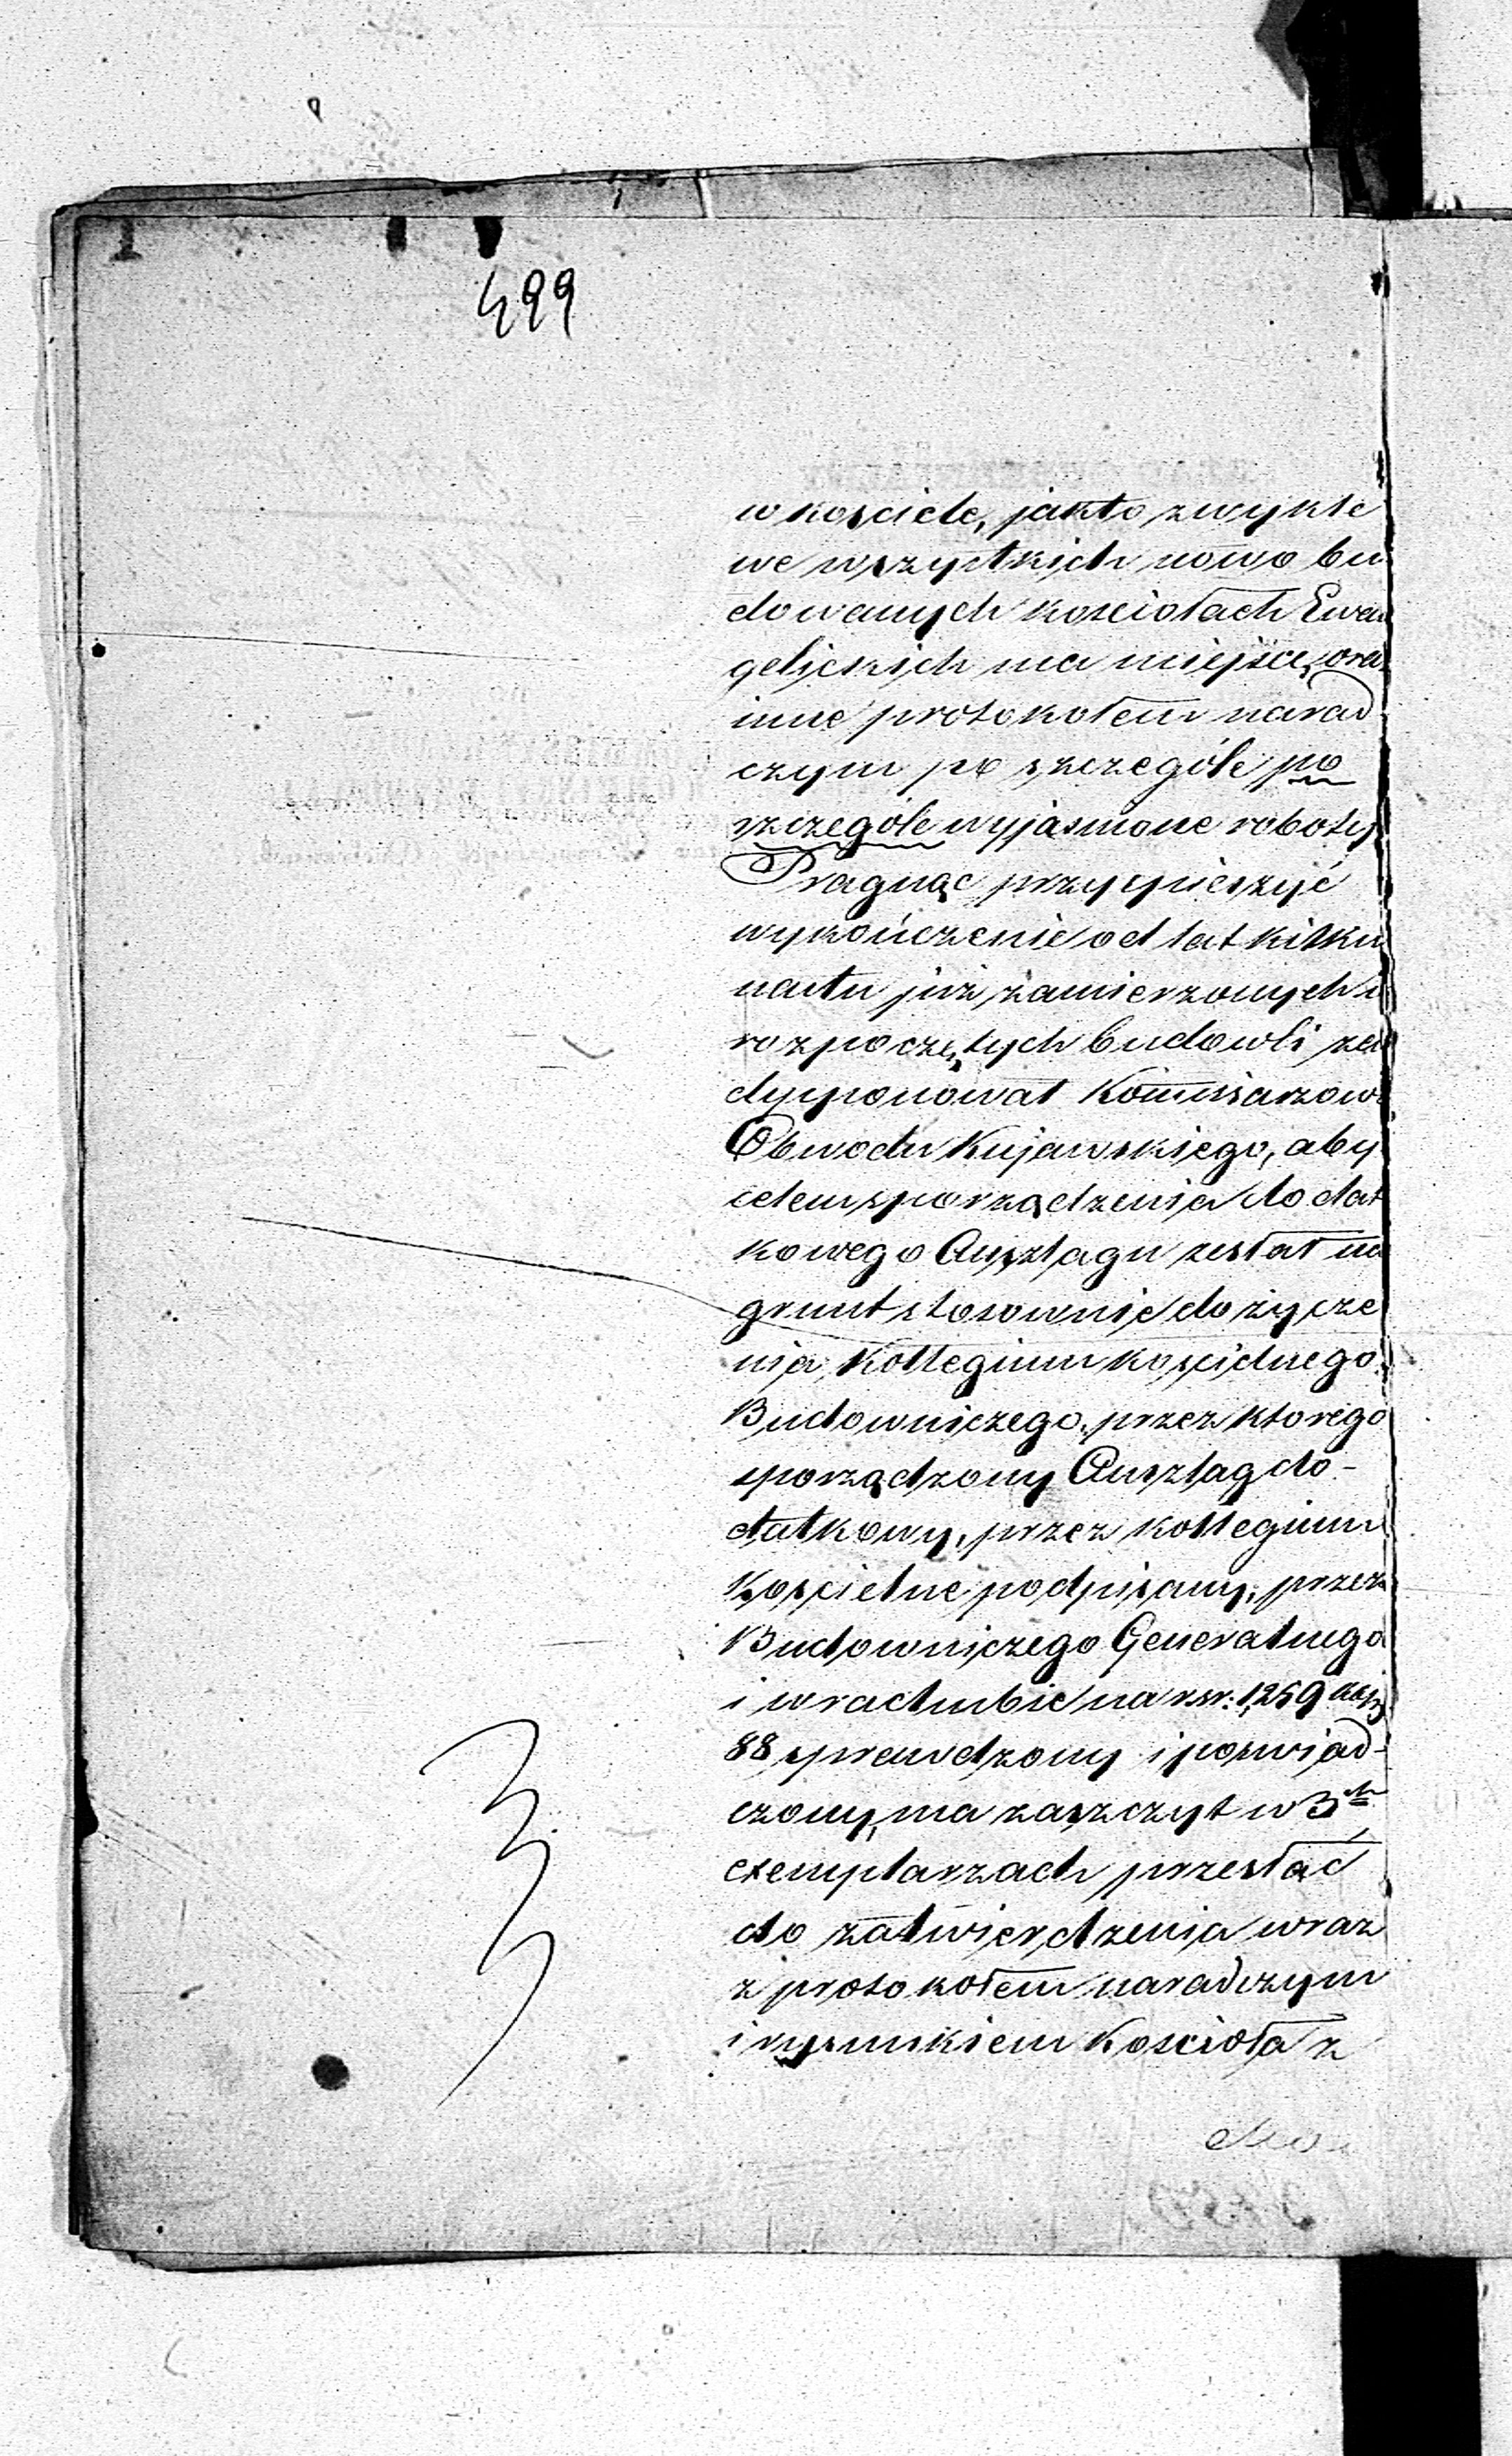 499
w kosciele, jakto zwykle
we wszystkich nowo bu
dowanych kosciołach Ewan
gelickich ma miejsce, ora
inne protokołem narad
czym po szczególe po
szczególe wyjasnione roboty.
Pragnąc przyspieszyć
wykończenie od lat kilku
nastu już zamierzonych i
rozpoczętych budowli za
dysponował Kommisarzowi
Obwodu Kujawskiego, aby
celem sporządzenia dodat
kowego Anszlagu zesłał na
grunt stosownie do życze
nia, Kollegium koscielnego
Budowniczego, przez ktorego
sporządzony Anszlag do-
datkowy, przez kollegium
Koscielne podpisany, przez
Budowniczego Generalnego
i w rachubie na rsr: 1,259 kop
88 sprawdzony i poswiad-
czony, ma zaszczyt w 3ch
exemplarzach przesłać
do zatwierdzenia wraz
z protokołem naradczym
i rysunkiem Kościoła z